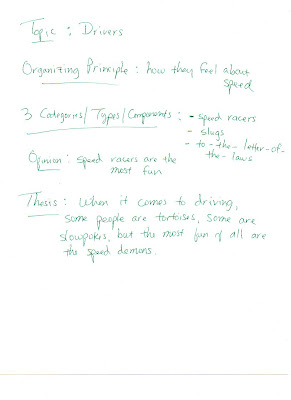 Topic : Drivers
Organizing Principle : how they feel about
speed
3 Categories/Types/Components : - speed racers
- slugs
- to-the-letter-of-
the-laws
Opinion : speed racers are the
most fun
Thesis : When it comes to driving,
some people are tortoises, some are
slowpokes, but the most fun of all are
the speed demons.